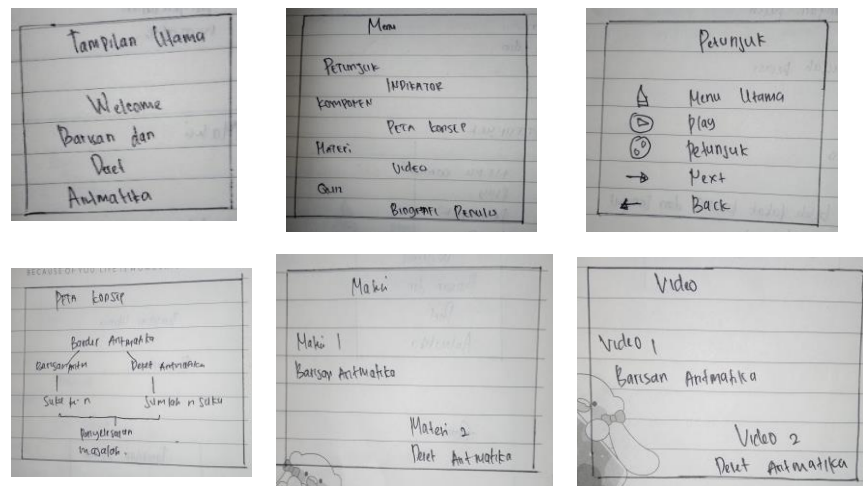 Tampilan Utama
Welcome
Barisan dan
Deret
Aritmatika
Menu
PETUNJUK
INDIKATOR
KOMPOTEN
PETA KONSEP
MATERI
VIDEO
Quiz
BIOGRAFI PENULIS
Petunjuk
Menu Utama
Play
Petunjuk
Next
Back
BECAUSE OF YOU, LIFE IS
PETA KONSEP
Aritmatika
Barisan Aritm
Deret Aritmatika
Suku ke n
Jumlah n suku
Penyelesaian
masalah.
Materi
Materi 1
Barisan Aritmatika
Materi 2
Deret Aritmatika
Video
Video 1
Barisan Aritmatika
Video 2
Deret Aritmatika